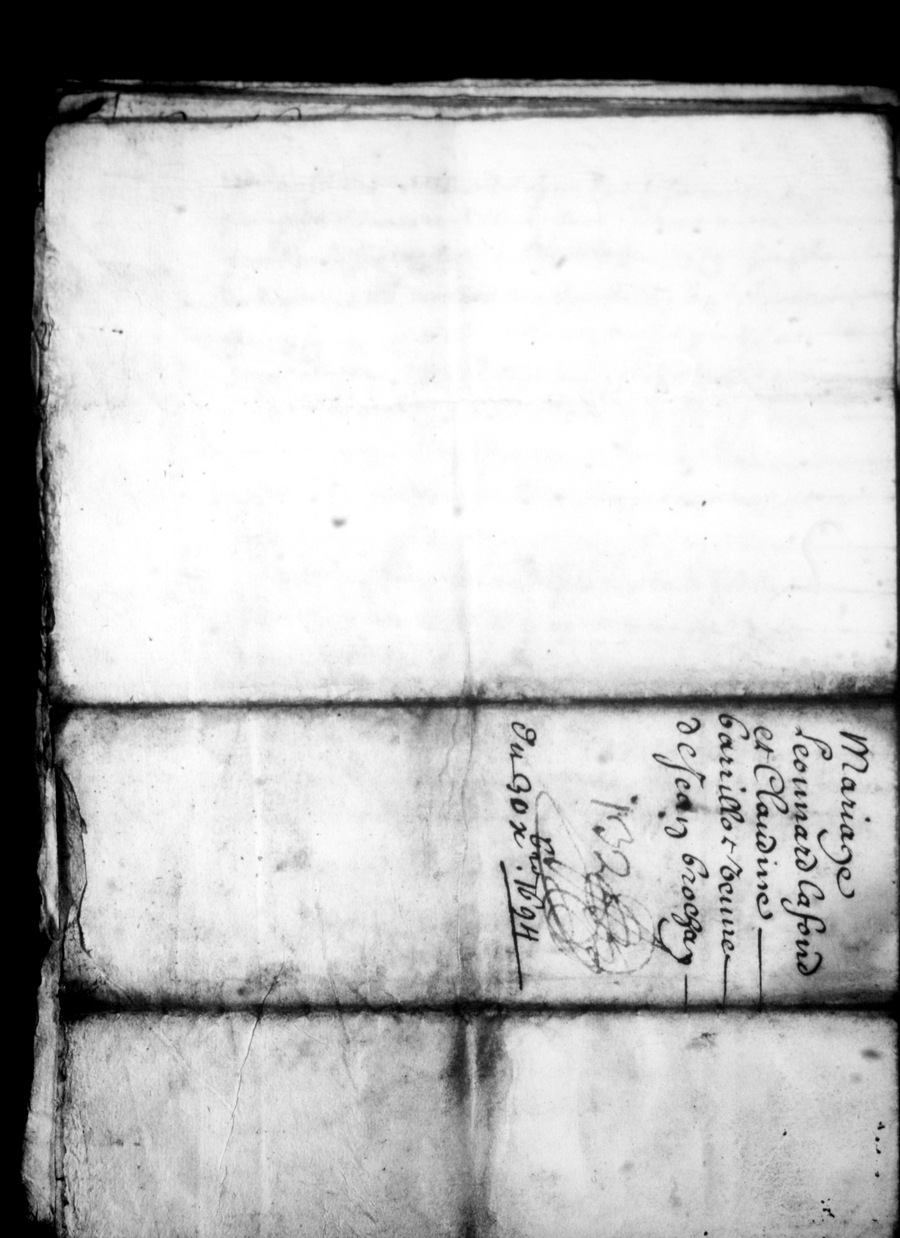 Mariage
Leonnard Casord
et Claudine
barrillot veuve
de Jean brochan
132
Du 30 xbre. 1694